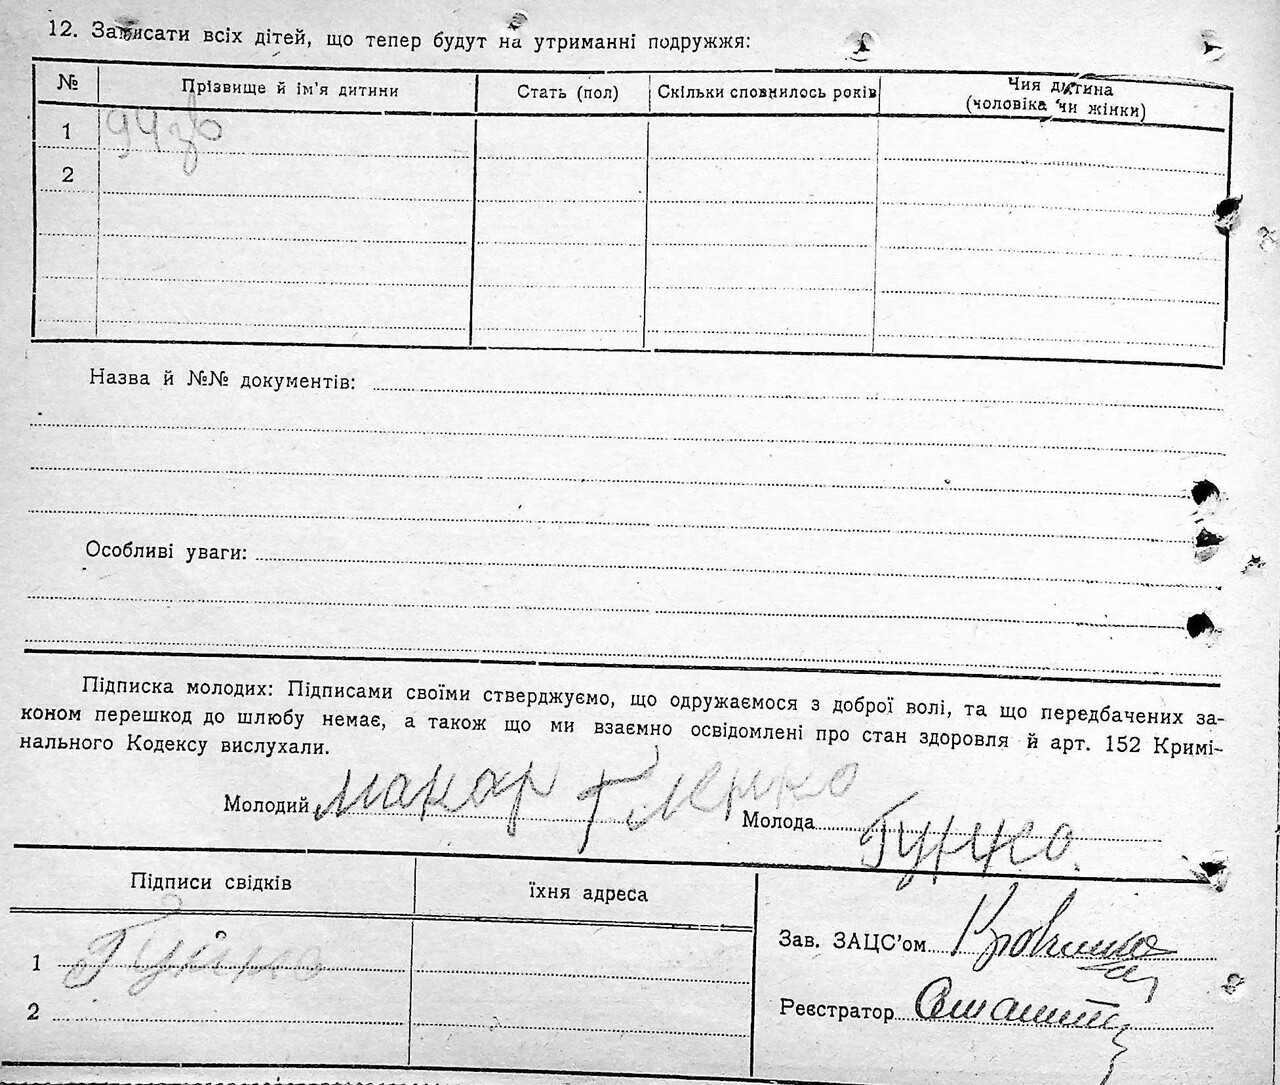 12. Записати всіх дітей, що тепер будут на утриманні подружжя:
№ Прізвище й ім'я дитини Стать (пол) Скільки сповнилось років Чия дитина
(чоловіка чи жінки)
1
2
Назва й №№ документів:
Особливі уваги:
Підписка молодих: Підписами своїми стверджуємо, що одружаємося з доброї волі, та що передбачених за-
коном перешкод до шлюбу немає, а також що ми взаємно освідомлені про стан здоровля й арт. 152 Кримі-
нального Кодексу вислухали.
Молодий Макар
Молода
Підписи свідків їхня адреса
1
2
Зав. ЗАЦС'ом
Реєстратор